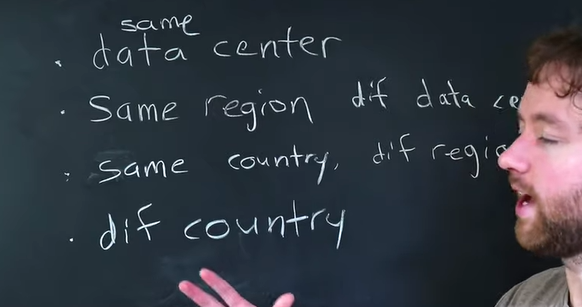 same
· data center
· Same region dif data ce
· same country, dif regio
· dif country